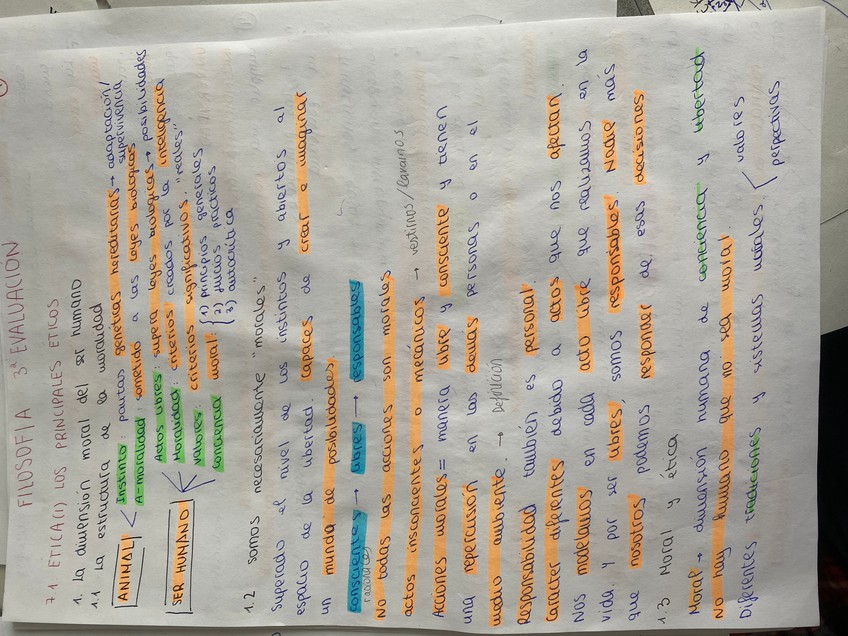 FILOSOFIA 3ª EVALUACIÓN
7.1. ETICA(I) LOS PRINCIPALES ETICOS
1. La dimensión moral del ser humano
1.1 La estructura de la moralidad
ANIMAL
Instinto: pautas genéticas hereditarias → adaptación/
supervivencia
A-moralidad: sometido a las leyes biologicas
SER HUMANO
Actos libres: supera leyes biologicas → posibilidades
Moralidad: criterios creados por la inteligencia
Valores: criterios significativos. "reales"
Conciencia moral:
1) principios generales
2) juicios prácticos
3) autocrítica
1.2 somos necesariamante "morales"
Superado el nivel de los instintos y abiertos al
espacio de la libertad. Capaces de crear e imaginar
un mundo de posibilidades.
consciente → libres → responsables
racionales
No todas las acciones son morales
actos insconcientes o mecánicos → vestirnos/lavarnos
Acciones morales = manera libre y consciente y tienen
una repercusión en las demás personas o en el
medio ambiente. → Definición
Responsabilidad también es personal.
Caracter diferentes debido a actos que nos afectan.
Nos modelamos en cada acto libre que realizamos en la
vida. Y por ser libres, somos responsables. Nadie más
que nosotros podemos responder de esas decisiones
1.3 Moral y ética
Moral → dimensión humana de conciencia y libertad
No hay humano que no sea moral.
Diferentes tradiciones y sistemas morales
valores
perspectivas